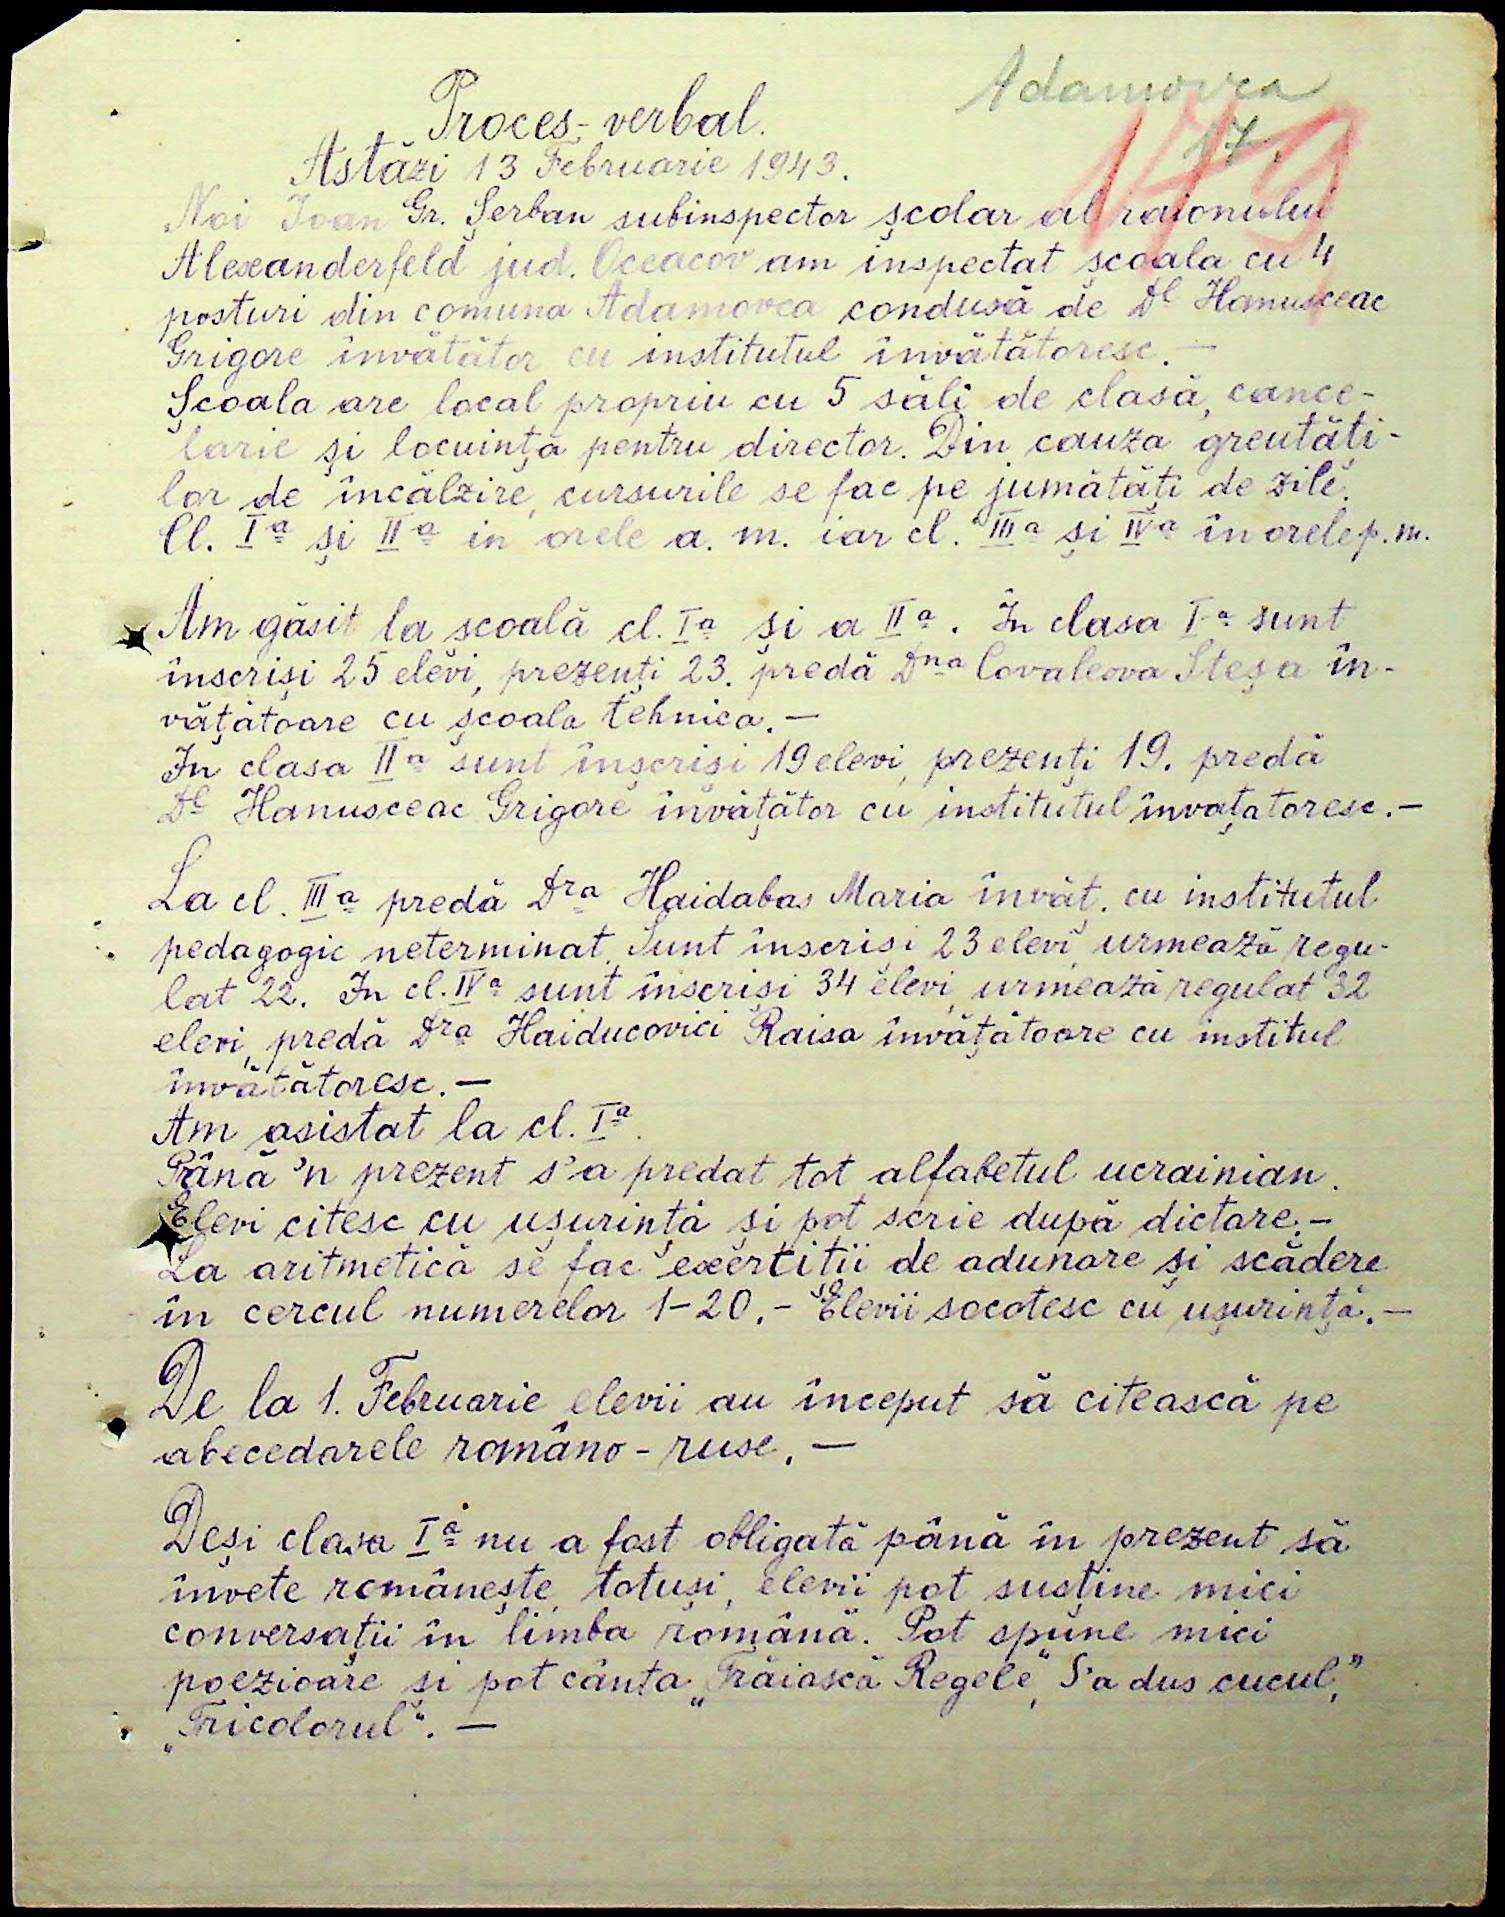 Adamovca
17.
179
Proces-verbal.
Astăzi 13 Februarie 1943.
Noi Ioan Gr. Şerban subinspector şcolar al raionului
Alexanderfeld jud. Oceacov am inspectat şcoala cu 4
posturi din comuna Adamovca condusă de Dl Hanusceac
Grigore învătător cu institutul învătătoresc. —
Şcoala are local propriu cu 5 săli de clasă, cance-
larie şi locuinţă pentru director. Din cauza greutăţi-
lor de încălzire, cursurile se fac pe jumătăţi de zile.
Cl. Ia şi IIa in orele a. m. iar cl. IIIa şi IVa în orele p. m.
Am găsit la şcoală cl. Ia şi a IIa. În clasa I-a sunt
înscrişi 25 elevi, prezenţi 23. predă Dna Covaleova Steşa în-
văţătoare cu şcoala tehnica. —
În clasa IIa sunt înscrişi 19 elevi, prezenţi 19. predă
Dl Hanusceac Grigore învăţător cu institutul învaţatoresc. —
La cl. IIIa predă Dra Haidabas Maria învăţ. cu institutul
pedagogic neterminat. Sunt înscrişi 23 elevi, urmează regu-
lat 22. În cl. IVa sunt înscrişi 34 elevi, urmează regulat 32
elevi, predă Dra Haiducovici Raisa învăţătoare cu institul
învătătoresc. —
Am asistat la cl. Ia.
Până 'n prezent s'a predat tot alfabetul ucrainian.
Elevi citesc cu uşurinţă şi pot scrie după dictare. —
La aritmetică se fac exerciţii de adunare şi scădere
în cercul numerelor 1-20. - Elevii socotesc cu uşurinţă. —
De la 1. Februarie elevii au început să citească pe
abecedarele româno-ruse. —
Deşi clasa Ia nu a fost obligată până în prezent să
învete româneşte, totuşi, elevii pot susţine mici
conversaţii în limba română. Pot spune mici
poezioare şi pot cânta „Trăiască Regele", S'a dus cucul",
„Tricolorul". —